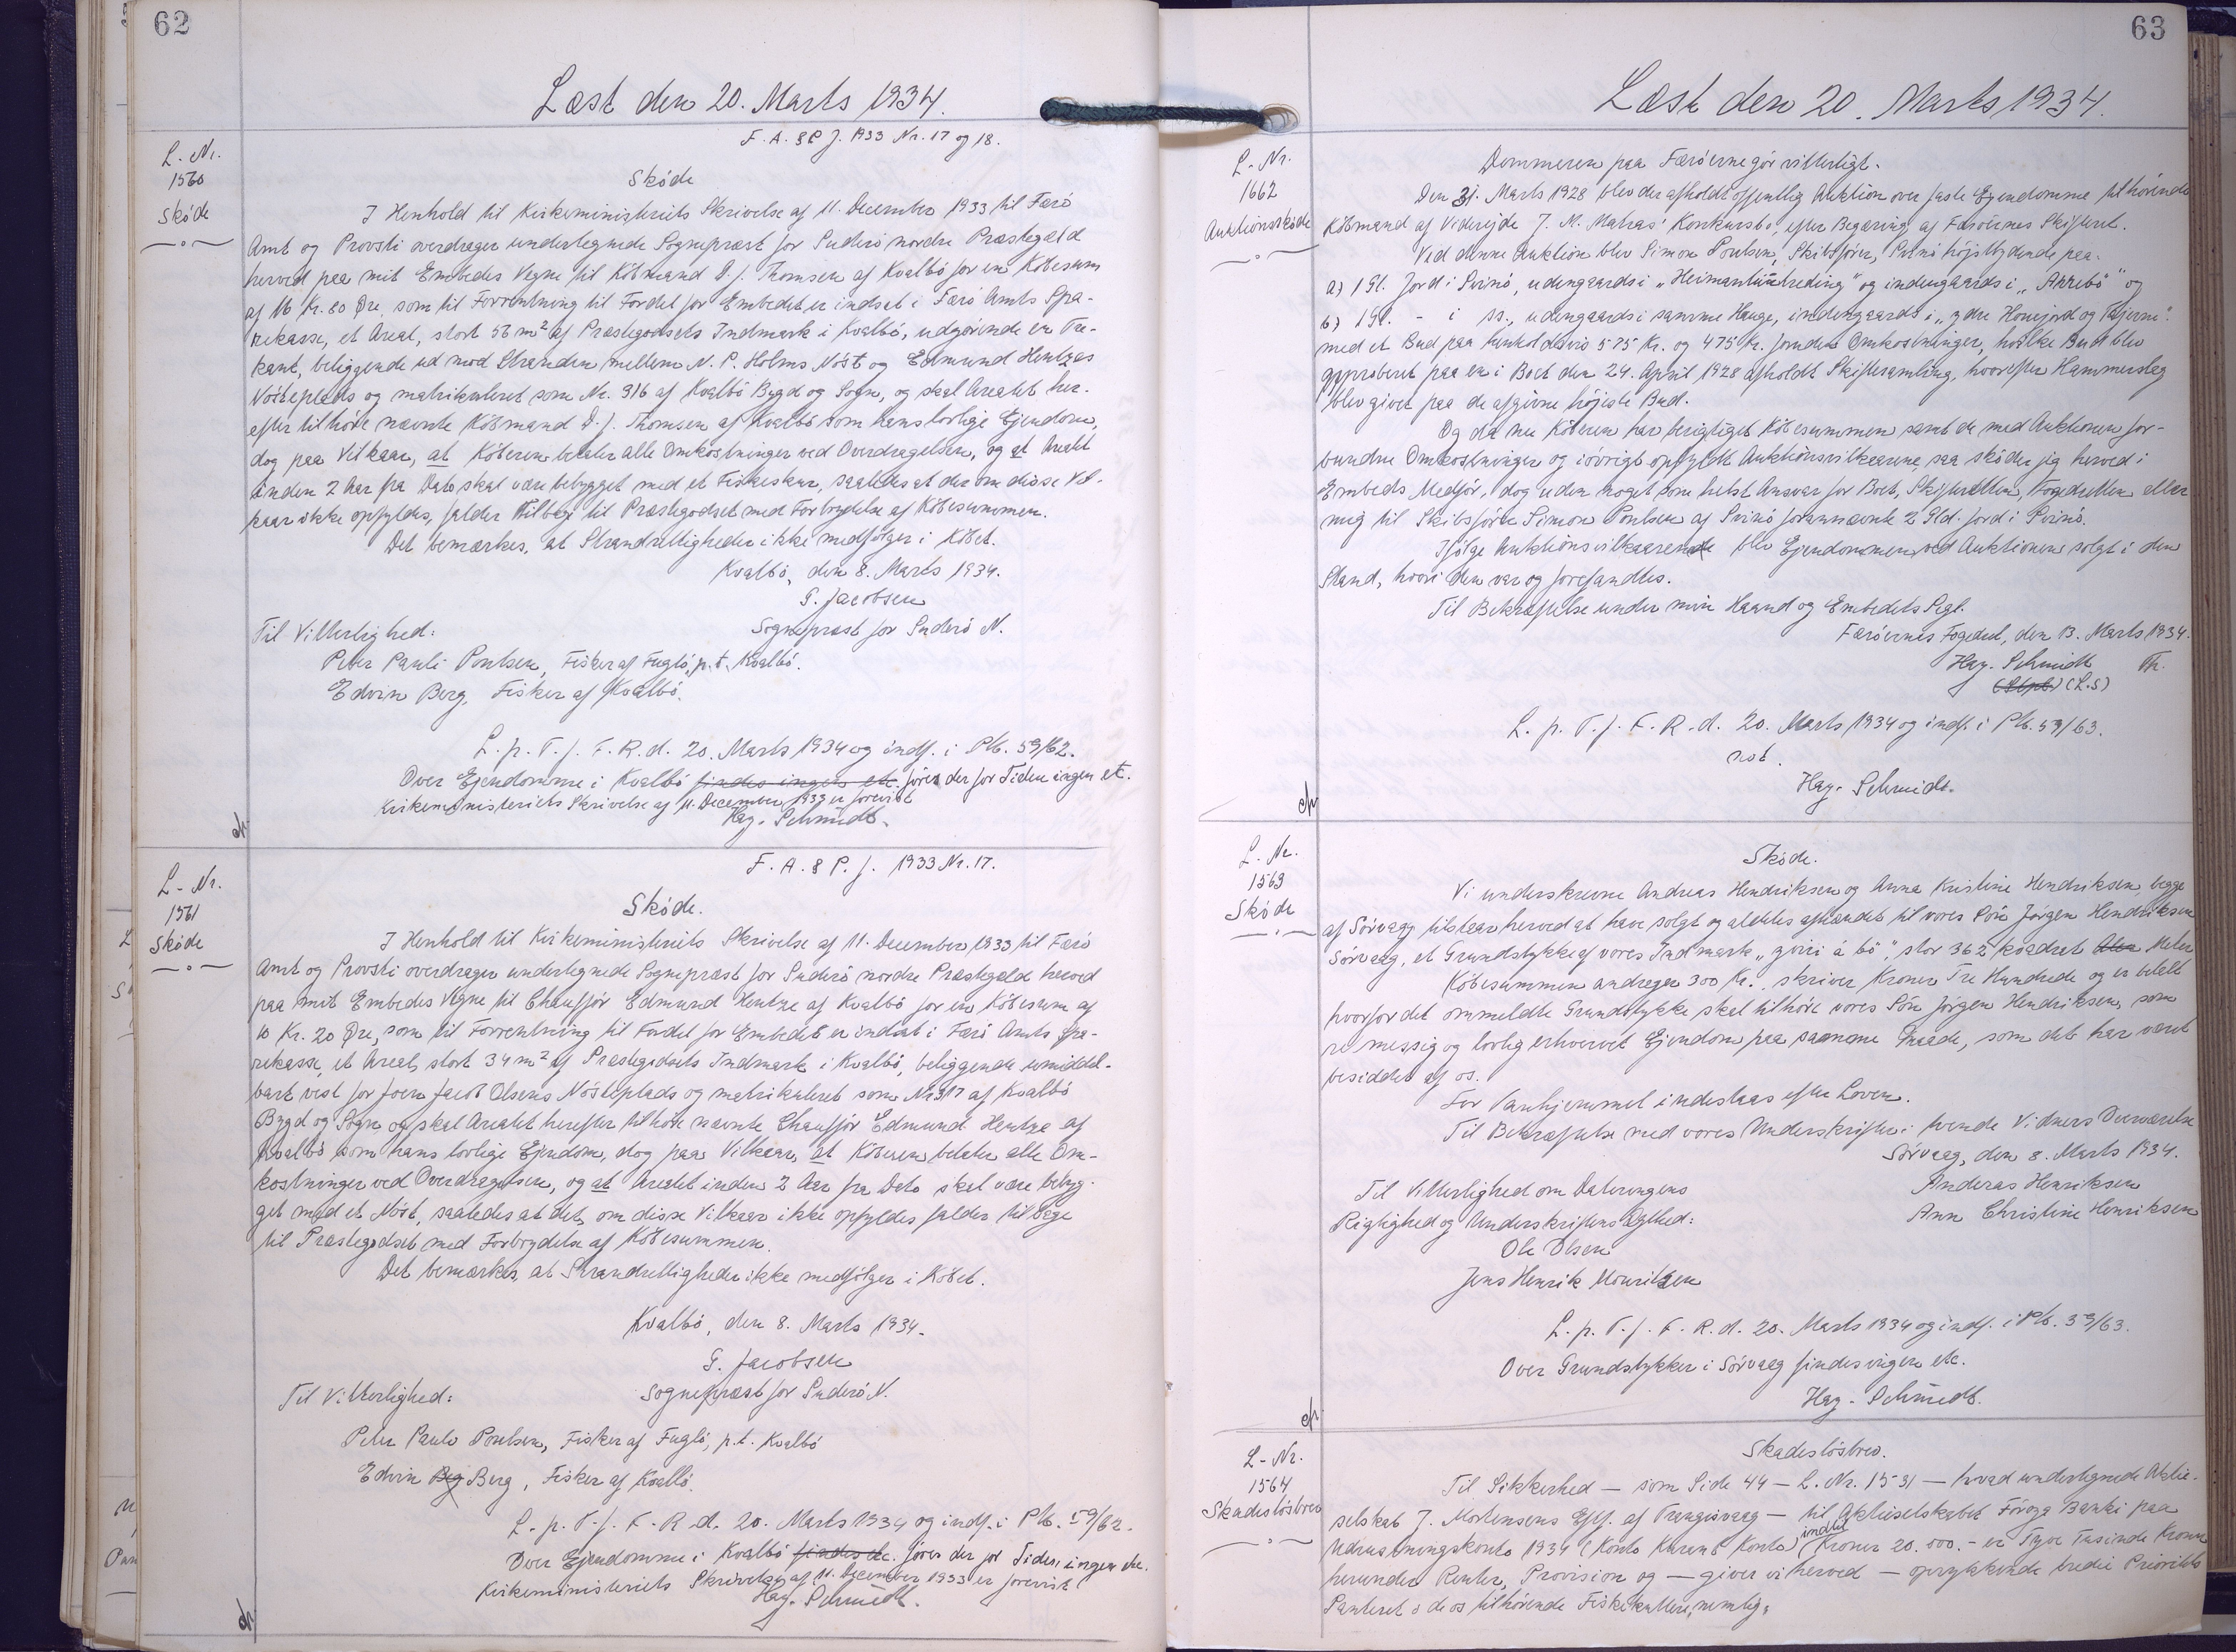 62
Læst den 20. Marts 1934.
F. A. & P. J. 1933 Nr. 17 og 18.
L. Nr.
1560
Skøde
Skøde
I Henhold til Kirkeministeriets Skrivelse af 11. December 1933 til Færø
Amt og Provsti overdrager undertegnede Sognepræst for Suderø nordre Præstegæld
herved paa mit Embedes Vegne til Købmand D. J. Thomsen af Kvalbø for en Købesum
af 16 Kr. 80 Øre, som til Forrentning til Fordel for Embedet er indsat i Færø Amts Spa-
rekasse, et Areal, stort 56 m² af Præstegodsets Indmark i Kvalbø, udgørende en Tre-
kant, beliggende ud mod Stranden mellem N. P. Holms Nøst og Edmund Hentzes
Nøsteplads og matrikuleret som Nr. 316 af Kvalbø Bygd og Sogn, og skal Arealet her-
efter tilhøre nævnte Købmand D. J. Thomsen af Kvalbø som hans lovlige Ejendom,
dog paa Vilkaar, at Køberen betaler alle Omkostninger ved Overdragelsen, og at Arealet
inden 2 Aar fra Dato skal være bebygget med et Fiskeskur, saaledes at det om disse Vil-
kaar ikke opfyldes, falder tilbage til Præstegodset med Forbrydelse af Købesummen.
Det bemærkes, at Strandrettigheder ikke medfølger i Købet.
Kvalbø, den 8. Marts 1934.
G. Jacobsen
Til Vitterlighed: Sognepræst for Suderø N.
Peter Pauli Poulsen, Fisker af Fuglø, p.t. Kvalbø.
Edvin Berg, Fisker af Kvalbø.
L. p. T. f. F. R. d. 20. Marts 1934 og indf. i Ptb. 59/62.
Over Ejendomme i Kvalbø findes ingen etc. føres der for Tiden ingen etc.
Kirkeministeriets Skrivelse af 11. December 1933 er forevist
Hag. Schmidt.
F. A. & P. J. 1933 Nr. 17.
L. Nr.
1561
Skøde
Skøde.
I Henhold til Kirkeministeriets Skrivelse af 11. December 1933 til Færø
Amt og Provsti overdrager undertegnede Sognepræst for Suderø nordre Præstegæld herved
paa mit Embedes Vegne til Chauffør Edmund Hentze af Kvalbø for en Købesum af
10 Kr. 20 Øre, som til Forrentning til Fordel for Embedet er indsat i Færø Amts Spa-
rekasse, et Areal, stort 34 m² af Præstegodsets Indmark i Kvalbø, beliggende umiddel-
bart vest for Joen Jacob Olsens Nøsteplads og matrikuleret som Nr. 317 af Kvalbø
Bygd og Sogn, og skal Arealet herefter tilhøre nævnte Chauffør Edmund Hentze af
Kvalbø som hans lovlige Ejendom, dog paa Vilkaar, at Køberen betaler alle Om-
kostninger ved Overdragelsen, og at Arealet inden 2 Aar fra Dato skal være bebyg-
get med et Nøst, saaledes at det, om disse Vilkaar ikke opfyldes falder tilbage
til Præstegodset med Forbrydelse af Købesummen.
Det bemærkes, at Strandrettigheder ikke medfølger i Købet.
Kvalbø, den 8. Marts 1934.
G. Jacobsen
Til Vitterlighed: Sognepræst for Suderø N.
Peter Paulo Poulsen, Fisker af Fuglø, p.t. Kvalbø
Edvin Beg Berg, Fisker af Kvalbø.
L. p. T. f. F. R. d. 20. Marts 1934 og indf. i Ptb. 59/62.
Over Ejendomme i Kvalbø findes etc. føres der for Tiden ingen etc.
Kirkeministeriets Skrivelse af 11. December 1933 er forevist
Hag. Schmidt.
63
Læst den 20. Marts 1934.
L. Nr.
1662
Auktionsskøde
Dommeren paa Færøerne gør vitterligt:
Den 31. Marts 1928 blev der afholdt offentlig Auktion over faste Ejendomme tilhørende
Købmand af Viderejde J. N. Matras' Konkursbo, efter Begæring af Færøernes Skifteret.
Ved denne Auktion blev Simon Poulsen, Skibsfører, Svinø højstbydende paa:
a) 1 Gl. Jord i Svinø, udengaards i og indengaards i og
b) 1 Gl. - i ss., udengaards i samme Hauge, indengaards i
med et Bud paa henholdsvis 575 Kr. og 475 Kr. foruden Omkostninger, hvilke Bud blev
approberet paa en i Boet den 24. April 1928 afholdt Skiftesamling, hvorefter Hammerslag
blev givet paa de afgivne højeste Bud.
Og da nu Køberen har berigtiget Købesummen samt de med Auktionen for-
bundne Omkostninger og iøvrigt opfyldt Auktionsvilkaarene, saa skøder jeg herved i
Embeds Medfør, dog uden noget som helst Ansvar for Boet, Skifteretten, Fogedretten eller
mig til Skibsfører Simon Poulsen af Svinø forannævnte 2 Gld. Jord i Svinø.
Ifølge Auktionsvilkaarene blev Ejendommen ved Auktionen solgt i den
Stand, hvori den var og forefandtes.
Til Bekræftelse under min Haand og Embedets Segl.
Færøernes Fogedret, den 13. Marts 1934.
Hag. Schmidt Th.
(L.S)
L. p. T. f. F. R. d. 20. Marts 1934 og indf. i Ptb. 59/63.
not.
Hag. Schmidt.
L. Nr.
1563
Skøde
Skøde.
Vi underskrevne Andreas Hendriksen og Anna Kristine Hendriksen, begge
af Sørvaag tilstaar herved at have solgt og aldeles afhændet til vores Søn Jørgen Hendriksen
Sørvaag, et Grundstykke af vores Indmark „yviri á bø", stor 362 kvadrat Meter
Købesummen andrager 300 Kr. skriver Kroner Tre Hundrede og er betalt
hvorfor det ommeldte Grundstykke skal tilhøre vores Søn Jørgen Hendriksen, som
retmessig og lovlig erhvervet Ejendom paa samme Maade, som det har været
besiddet af os.
For Vanhjemmel indestaas efter Loven.
Til Bekræftelse med vores Underskrifter i tvende Vidners Overværelse
Sørvaag, den 8. Marts 1934.
Til Vitterlighed om Dateringens Anderas Henriksen
Rigtighed og Underskriftens Ægthed: Ann Christine Henriksen
Ole Olsen
Jens Henrik Mouritzen
L. p. T. f. F. R. d. 20. Marts 1934 og indf. i Ptb. 59/63.
Over Grundstykker i Sørvaag findes ingen etc.
Hag. Schmidt.
L. Nr.
1564
Skadesløsbrev
Skadesløsbrev.
Til Sikkerhed — som Side 44 — L. Nr. 1531 — hvad undertegnede Aktie-
selskab J. Mortensens Eftf. af Trangisvaag — til Aktieselskabet Føroya Banki paa
Udrustningskonto 1934 (Konto Kurant Konto) indtil Kroner 20.000.- er Tyve Tusinde Kroner
herunder Renter, Provision og — giver vi herved — oprykkende tredie Prioritets
Panteret i de os tilhørende Fiskekuttere, nemlig: